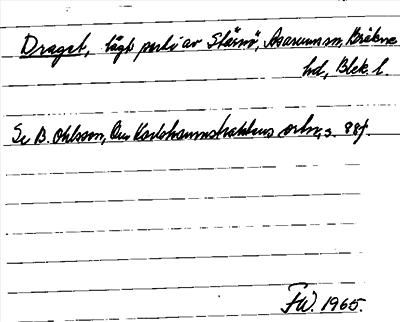 Draget, lågt parti av Stärnö, Asarums sn, Bräkne
hd, Blek. l.
Se B. Ohlsson, Om Karlshamnstraktens ortn., s. 88f.
FW. 1965.